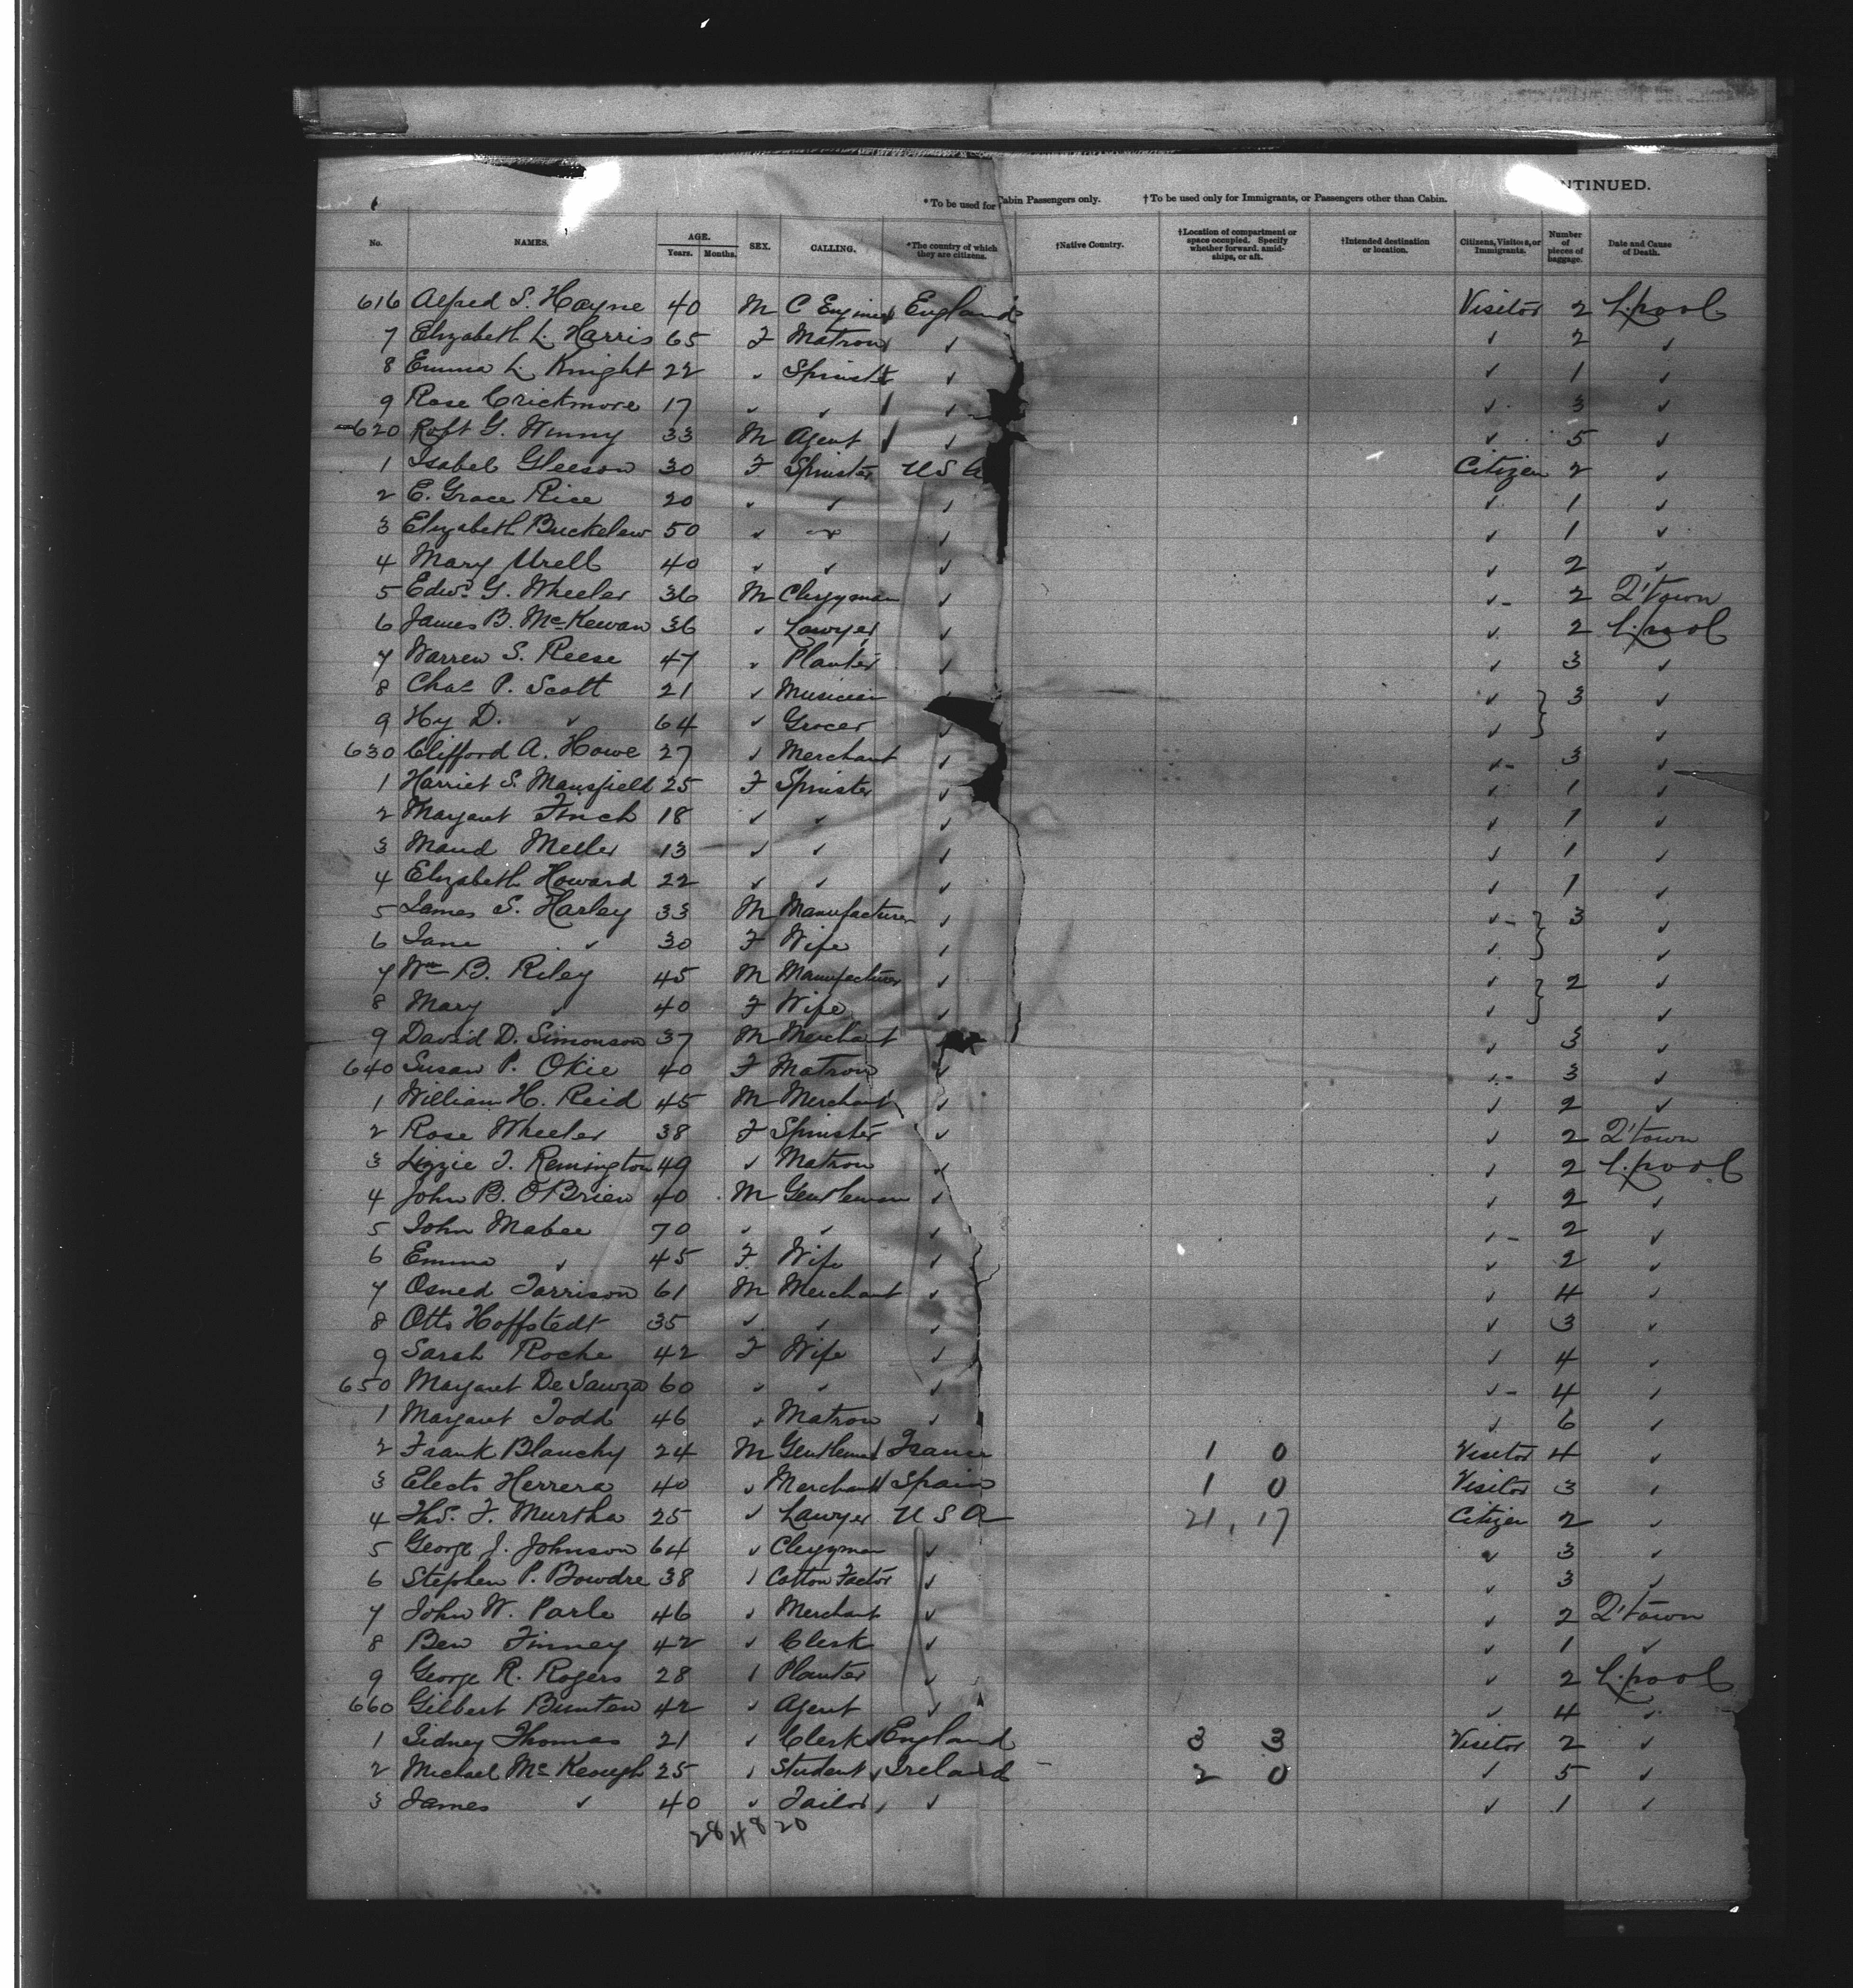 NTINUED.
* To be used for Cabin Passengers only. † To be used only for Immigrants, or Passengers other than Cabin.
No. NAMES. AGE. Years. Months. SEX. CALLING. *The country of which they are citizens. †Native Country. †Location of compartment or space occupied. Specify whether forward, amidships, or aft. †Intended destination or location. Citizens, Visitors, or Immigrants. Number of pieces of baggage. Date and Cause of Death.
616 Alfred S. Hayne 40 M C Engineer England Visitor 2 L.pool
7 Elizabeth L. Harris 65 F Matron ✓ ✓ 2 ✓
8 Emma L. Knight 22 ✓ Spinster ✓ ✓ 1 ✓
9 Rose Crickmore 17 ✓ ✓ ✓ ✓ 3 ✓
620 Robt G. Winny 33 M Agent ✓ ✓ 5 ✓
1 Isabel Gleeson 30 F Spinster U S A Citizen 2 ✓
2 E. Grace Rice 20 ✓ ✓ ✓ ✓ 1 ✓
3 Elizabeth Buckelew 50 ✓ ✓ ✓ ✓ 1 ✓
4 Mary Urell 40 ✓ ✓ ✓ ✓ 2 ✓
5 Edwd G. Wheeler 36 M Clergyman ✓ ✓ 2 Q'town
6 James B. McKewan 36 ✓ Lawyer ✓ ✓ 2 L.pool
7 Warren S. Reese 47 ✓ Planter ✓ ✓ 3 ✓
8 Chas P. Scott 21 ✓ Musician ✓ ✓ 3 ✓
9 Hy D. ✓ 64 ✓ Grocer ✓ ✓ ✓
630 Clifford A. Howe 27 ✓ Merchant ✓ ✓ 3 ✓
1 Harriet S. Mansfield 25 F Spinster ✓ ✓ 1 ✓
2 Margaret Finch 18 ✓ ✓ ✓ ✓ 1 ✓
3 Maud Meller 13 ✓ ✓ ✓ ✓ 1 ✓
4 Elizabeth Howard 22 ✓ ✓ ✓ ✓ 1 ✓
5 James S. Harley 33 M Manufacturer ✓ ✓ 3 ✓
6 Jane ✓ 30 F Wife ✓ ✓ ✓
7 Wm B. Riley 45 M Manufacturer ✓ ✓ 2 ✓
8 Mary ✓ 40 F Wife ✓ ✓ ✓
9 David D. Simonson 37 M Merchant ✓ ✓ 3 ✓
640 Susan P. Okie 40 F Matron ✓ ✓ 3 ✓
1 William H. Reid 45 M Merchant ✓ ✓ 2 ✓
2 Rose Wheeler 38 F Spinster ✓ ✓ 2 Q'town
3 Lizzie J. Remington 49 ✓ Matron ✓ ✓ 2 L.pool
4 John B. O'Brien 40 M Gentleman ✓ ✓ 2 ✓
5 John Mabee 70 ✓ ✓ ✓ ✓ 2 ✓
6 Emma ✓ 45 F Wife ✓ ✓ 2 ✓
7 Osned Jarrison 61 M Merchant ✓ ✓ 4 ✓
8 Otto Hoffstedt 35 ✓ ✓ ✓ ✓ 3 ✓
9 Sarah Roche 42 F Wife ✓ ✓ 4 ✓
650 Margaret De Sawza 60 ✓ ✓ ✓ ✓ 4 ✓
1 Margaret Todd 46 ✓ Matron ✓ ✓ 6 ✓
2 Frank Blanchy 24 M Gentleman France 1 0 Visitor 4 ✓
3 Electo Herrera 40 ✓ Merchant Spain 1 0 Visitor 3 ✓
4 Ths. F. Murtha 25 ✓ Lawyer U S A 21, 17 Citizen 2 ✓
5 George J. Johnson 64 ✓ Clergyman ✓ ✓ 3 ✓
6 Stephen P. Bowdre 38 ✓ Cotton Factor ✓ ✓ 3 ✓
7 John W. Parle 46 ✓ Merchant ✓ ✓ 2 Q'town
8 Ben Finney 42 ✓ Clerk ✓ ✓ 1 ✓
9 George R. Rogers 28 ✓ Planter ✓ ✓ 2 L.pool
660 Gilbert Bunten 42 ✓ Agent ✓ ✓ 4 ✓
1 Sidney Thomas 21 ✓ Clerk England 3 3 Visitor 2 ✓
2 Michael McKeough 25 ✓ Student Ireland 2 0 ✓ 5 ✓
3 James ✓ 40 ✓ Tailor ✓ ✓ 1 ✓
28 48 20